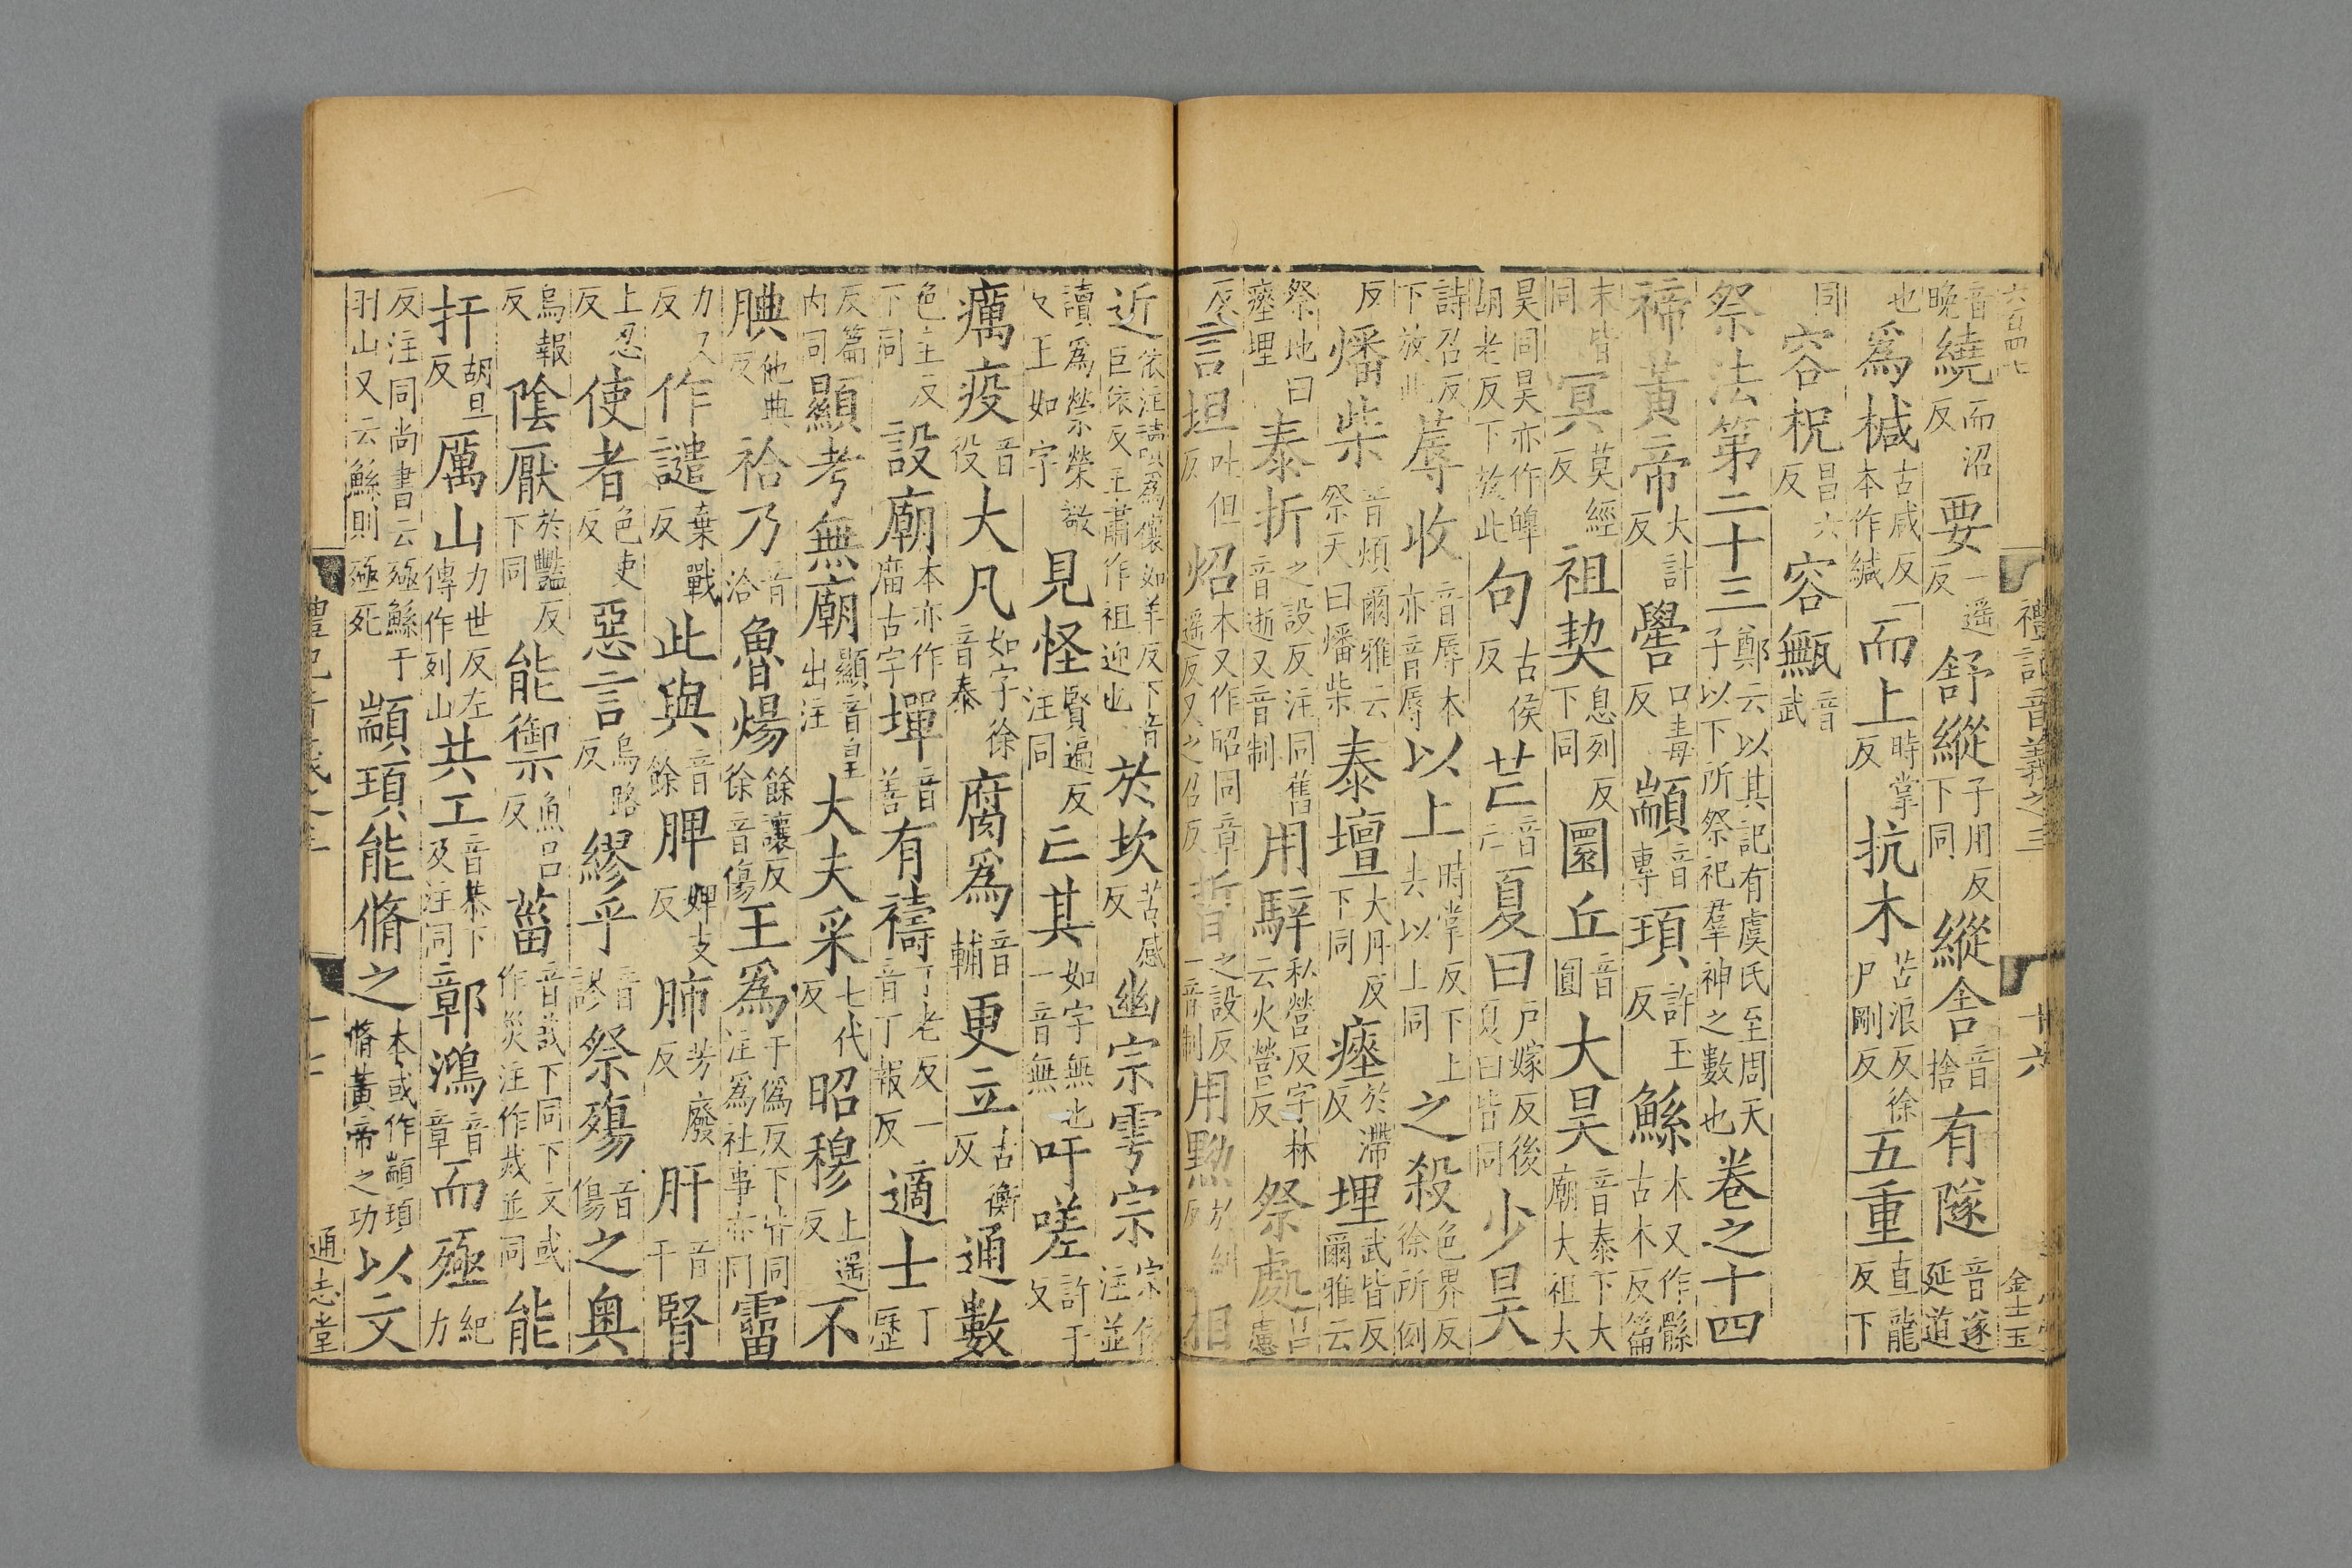 禮記音義之三 十六 金士玉
音晚繞而沼反要一遥反舒縱子用反下同縱舍音捨有隧音遂延道
也爲椷古咸反一本作緘而上時掌反抗木苦浪反徐尸剛反五重直龍反下
同容柷昌六反容甒音武
祭法第二十三鄭云以其記有虞氏至周天子以下所祭祀羣神之數也卷之十四
禘黃帝大計反嚳口毒反顓音專頊許玉反鯀本又作骸古本反篇
末皆同冥莫經反祖契息列反下同圜丘音圓大昊音泰下大廟大祖大
昊同昊亦作皞胡老反下放此句古侯反芒音亡夏曰戶嫁反後夏曰皆同少昊
詩召反下放此蓐收音辱本亦音辱以上時掌反下上去以上同之殺色界反徐所例
反燔柴音煩爾雅云祭天曰燔柴泰壇大丹反下同瘞於滯反埋武皆反爾雅云
祭地曰瘞埋泰折之設反注同舊音逝又音制用騂私營反字林云火營反祭處昌慮
反言坦吐但反炤本又作昭同章遥反又之召反晢之設反一音制用黝於糾反相
近依注讀爲禳如羊反下音巨依反王肅作祖迎也於坎苦感反幽宗雩宗宗依注並
讀爲禜榮敬反王如字見怪賢遍反注同亡其如字無也一音無吁嗟許于反
癘疫音役大凡如字徐音泰腐爲音輔更立古衡反通數
色主反下同設廟本亦作庿古字墠音善有禱丁老反一音丁報反適士丁歷
反篇內同顯考無廟顯音皇出注大夫采七代反昭穆上遥反不
腆他典反祫乃音洽魯煬餘讓反徐音傷王爲于僞反下皆同注爲社事亦同霤
力又反作譴棄戰反此與音餘脾婢支反肺芳廢反肝音干腎
上忍反使者色吏反惡言烏路反繆乎音謬祭殤音傷之奧
烏報反陰厭於豔反下同能禦魚呂反菑音哉下同下文或作災注作烖並同能
扞胡旦反厲山力世反左傳作列山共工音恭下及注同鄣鴻音章而殛紀力
反注同尚書云殛鯀于羽山又云鯀則殛死顓頊能脩之本或作顓頊脩黃帝之功以文
通志堂